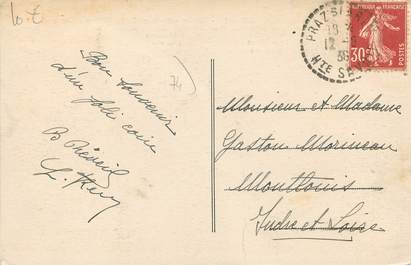 10 €
74
Bon souvenir
d'un joli coin
PRAZ S/
12
36
HTE SAV
RÉPUBLIQUE FRANÇAISE
30c
Monsieur et Madame
Gaston Morineau
Montlouis
Indre et Loire